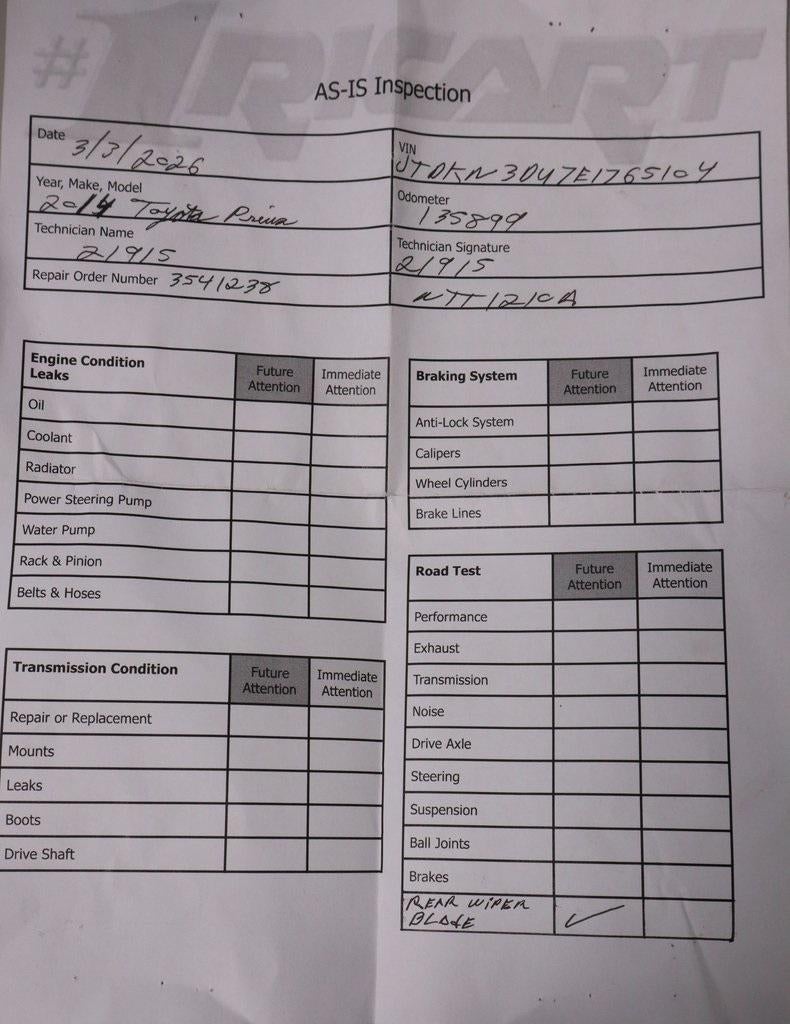 #1RICART
AS-IS Inspection
Date 3/3/2026
VIN JTDKN3DU7E1765104
Year, Make, Model 2014 Toyota Prius
Odometer 135899
Technician Name 21915
Technician Signature 21915
Repair Order Number 3541238
NTT1210A
Engine Condition Leaks Future Attention Immediate Attention
Oil
Coolant
Radiator
Power Steering Pump
Water Pump
Rack & Pinion
Belts & Hoses
Transmission Condition Future Attention Immediate Attention
Repair or Replacement
Mounts
Leaks
Boots
Drive Shaft
Braking System Future Attention Immediate Attention
Anti-Lock System
Calipers
Wheel Cylinders
Brake Lines
Road Test Future Attention Immediate Attention
Performance
Exhaust
Transmission
Noise
Drive Axle
Steering
Suspension
Ball Joints
Brakes
REAR WIPER
BLADE ✓